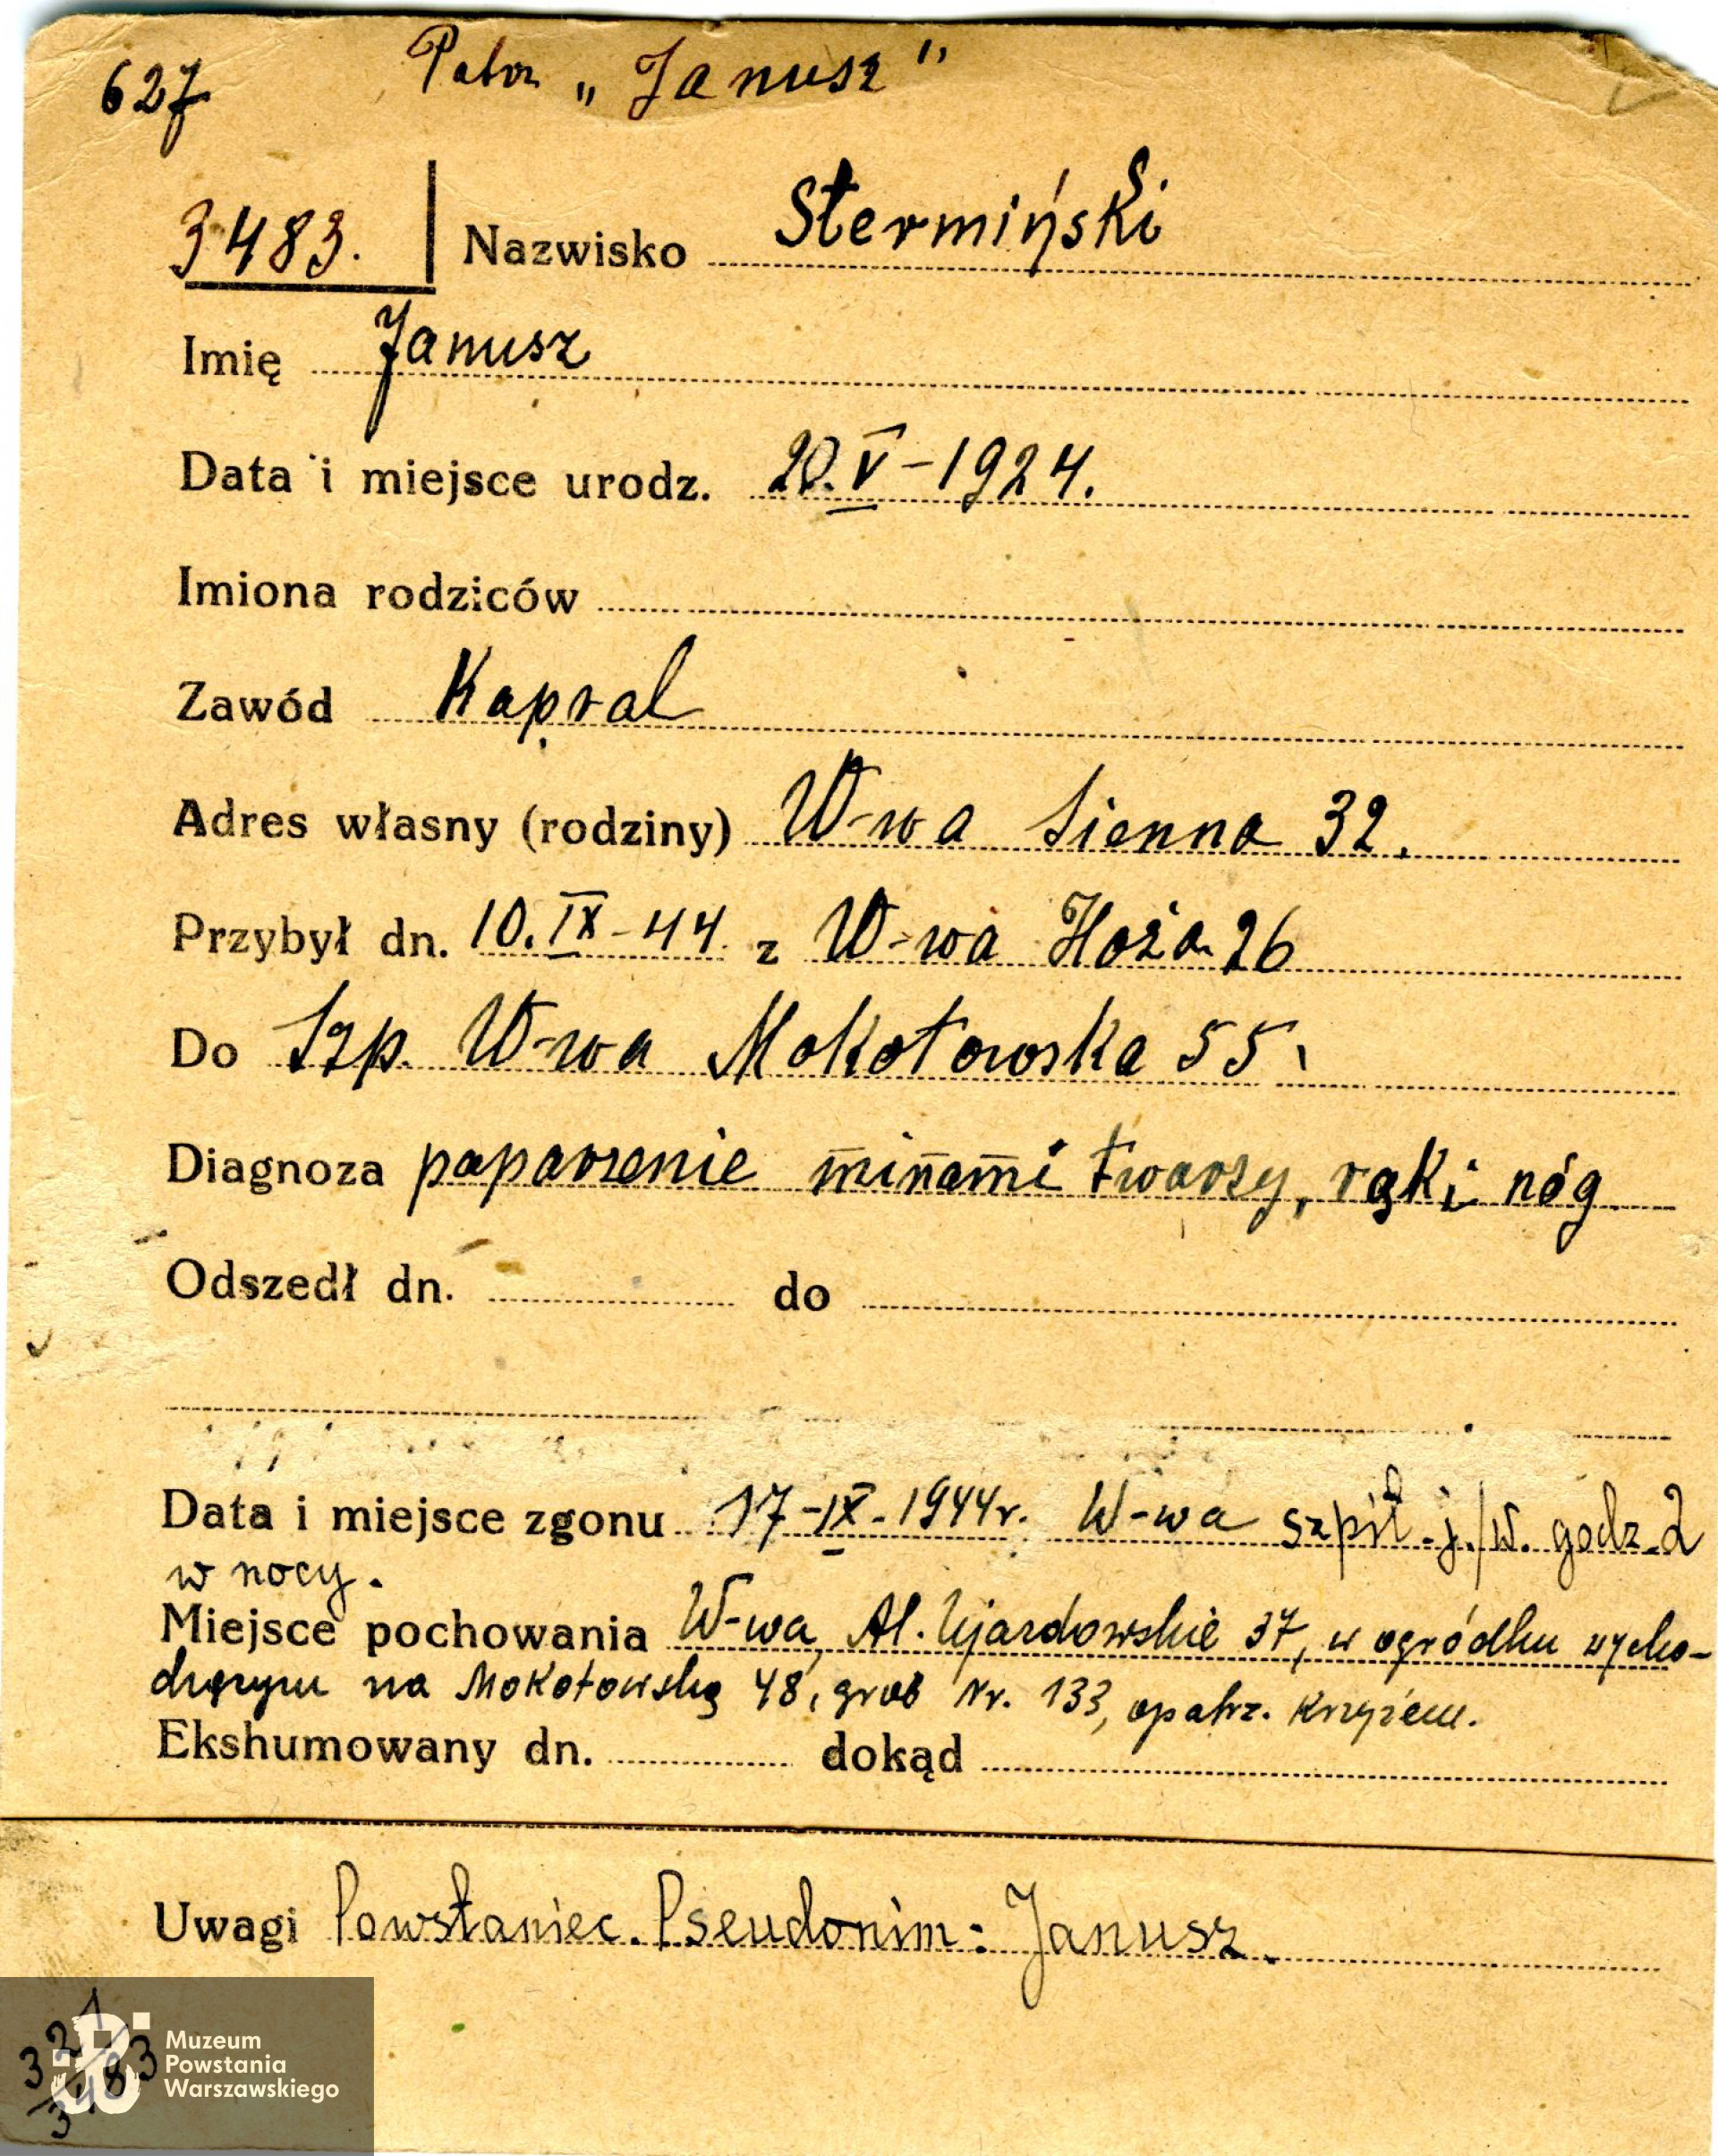 627 Patrz „Janusz”
3483. Nazwisko Stermiński
Imię Janusz
Data i miejsce urodz. 20.V-1924.
Imiona rodziców
Zawód Kapral
Adres własny (rodziny) W-wa Sienna 32.
Przybył dn. 10.IX-44 z W-wa Hoża 26
Do Szp. W-wa Mokotowska 55.
Diagnoza poparzenie minami twarzy, rąk i nóg
Odszedł dn. do
Data i miejsce zgonu 17-IX-1944r. W-wa szpit. j./w. godz. 2
w nocy.
Miejsce pochowania W-wa, Al. Ujazdowskie 37, w ogródku wycho-
dzącym na Mokotowską 48, grób Nr. 133, opatrz. krzyżem.
Ekshumowany dn. dokąd
Uwagi Powstaniec. Pseudonim: Janusz.
321
3483
Muzeum
Powstania
Warszawskiego